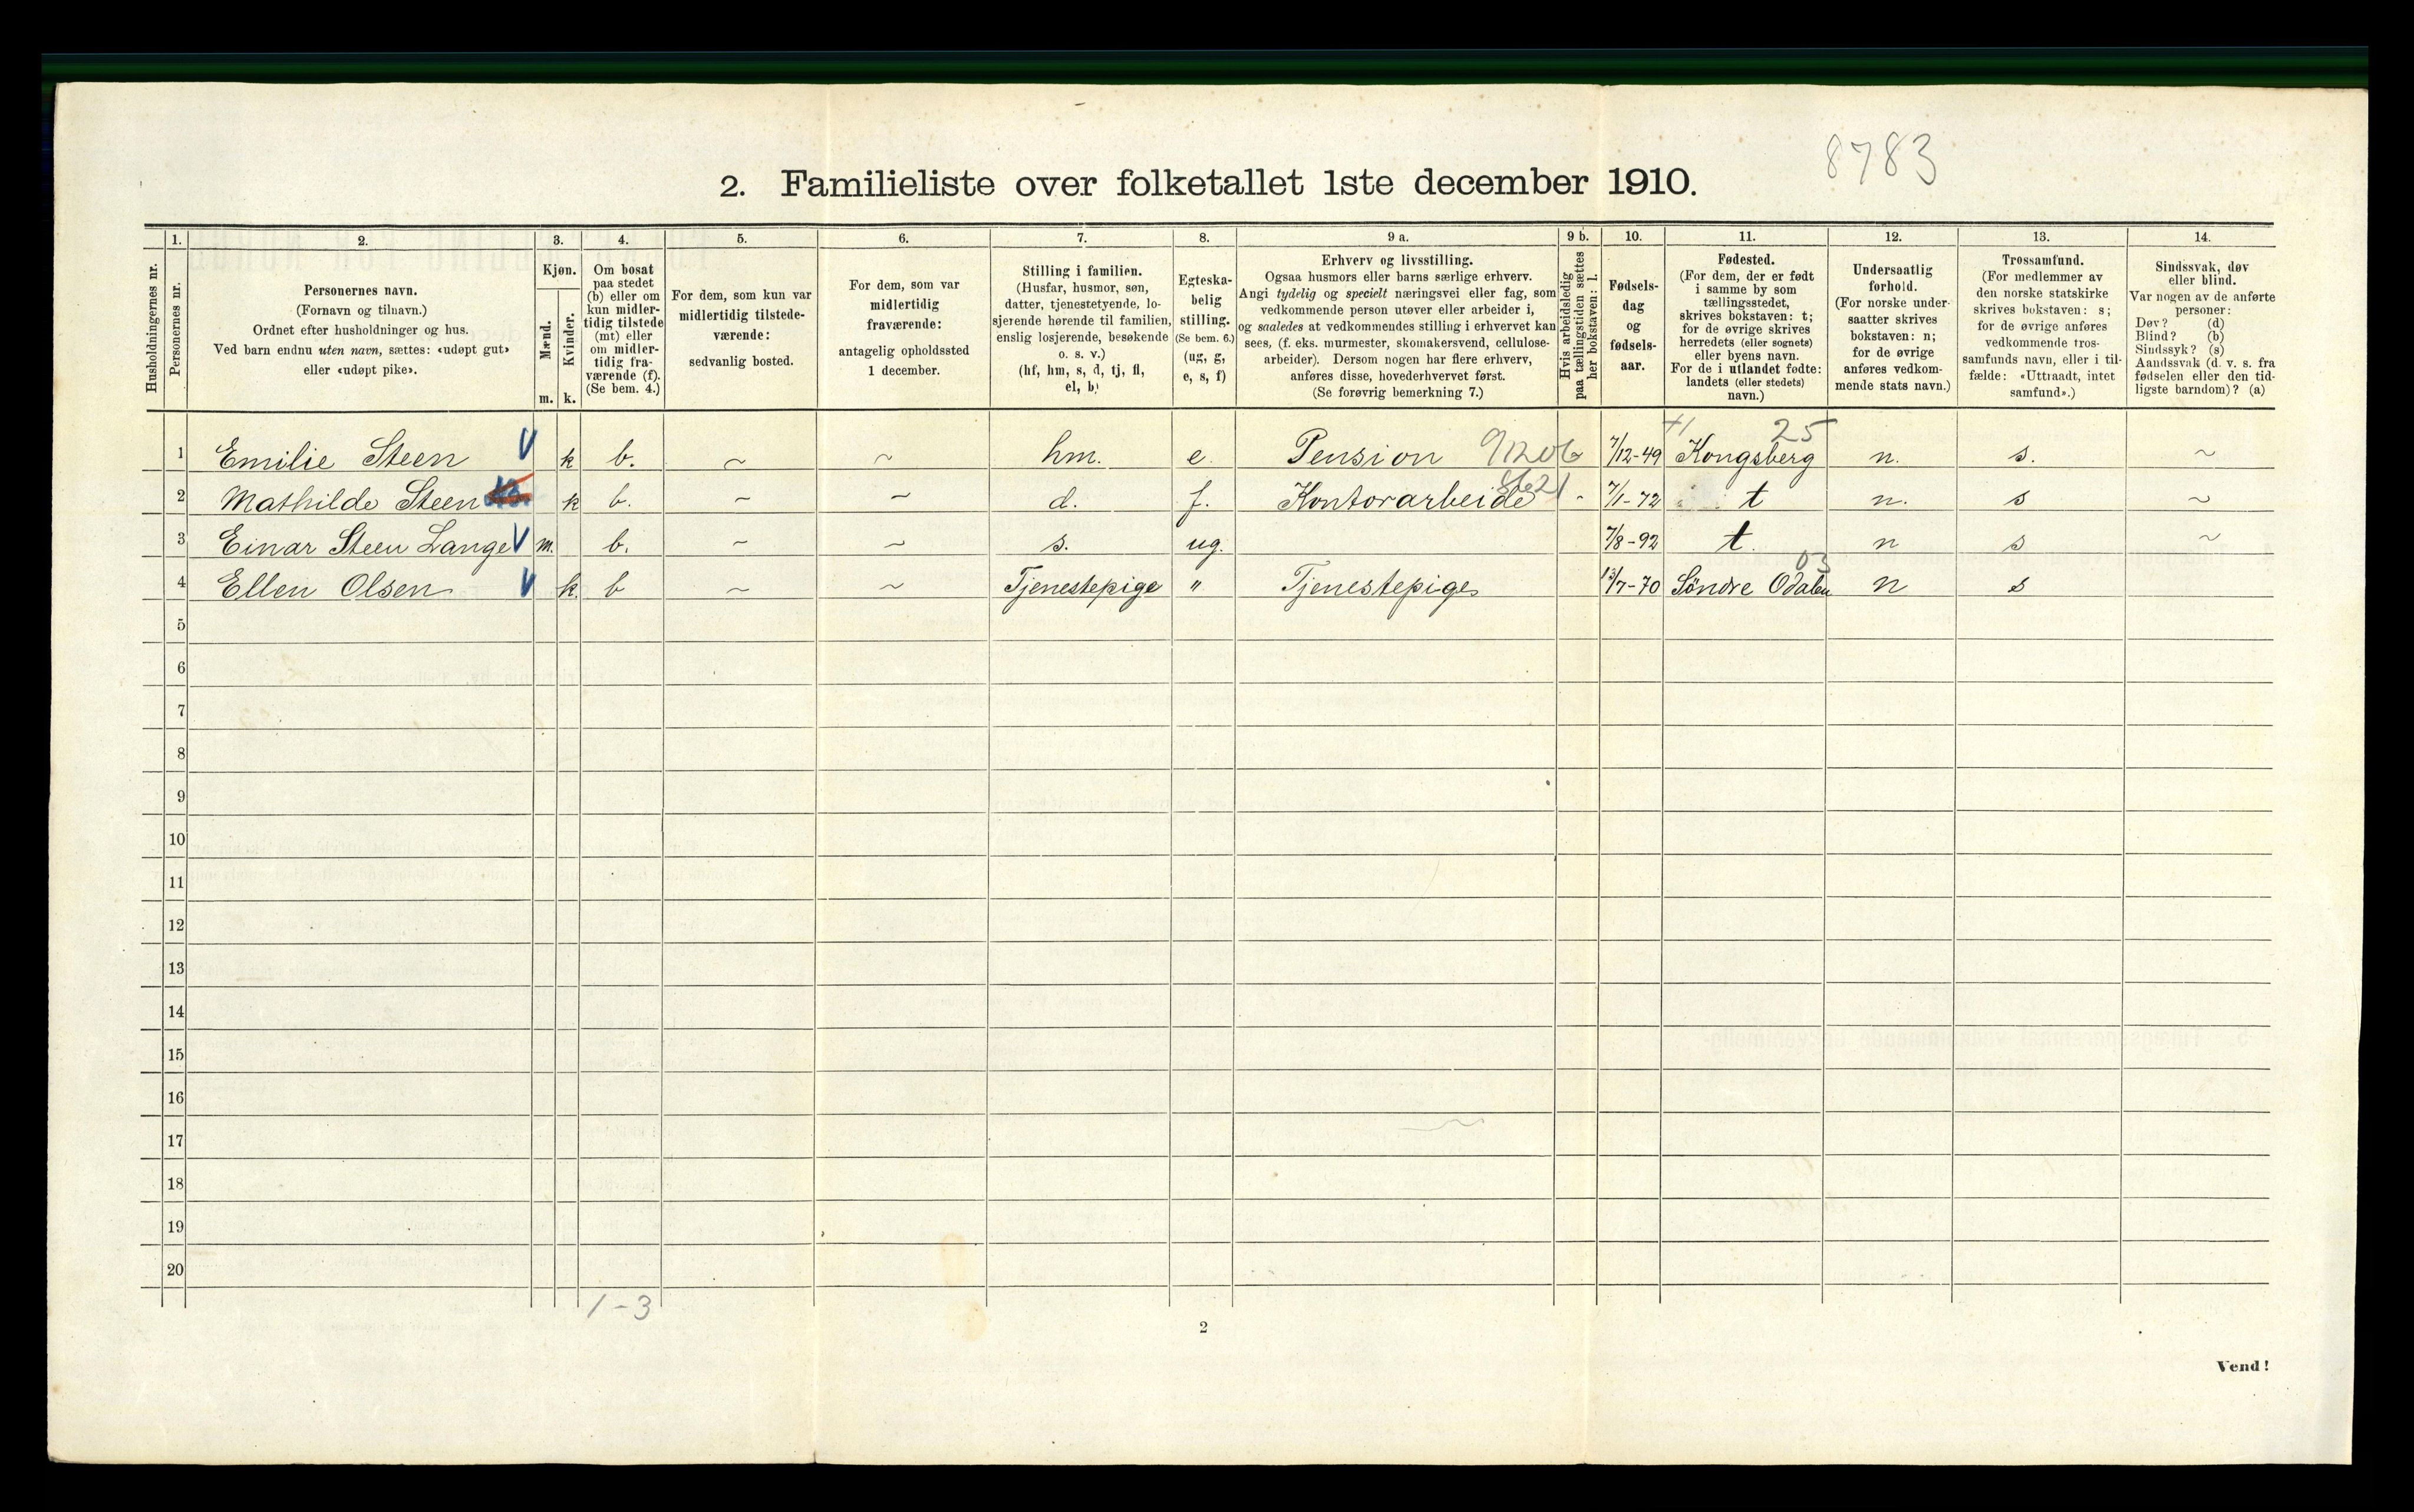 8783
2. Familieliste over folketallet 1ste december 1910.
Husholdningernes nr.
1. Personernes nr.
2. Personernes navn.
(Fornavn og tilnavn.)
Ordnet efter husholdninger og hus.
Ved barn endnu uten navn, sættes: «udøpt gut»
eller «udøpt pike».
3. Kjøn.
Mænd. m.
Kvinder. k.
4. Om bosat
paa stedet
(b) eller om
kun midler-
tidig tilstede
(mt) eller
om midler-
tidig fra-
værende (f).
(Se bem. 4.)
5. For dem, som kun var
midlertidig tilstede-
værende:
sedvanlig bosted.
6. For dem, som var
midlertidig
fraværende:
antagelig opholdssted
1 december.
7. Stilling i familien.
(Husfar, husmor, søn,
datter, tjenestetyende, lo-
sjerende hørende til familien,
enslig losjerende, besøkende
o. s. v.)
(hf, hm, s, d, tj, fl,
el, b)
8. Egteska-
belig
stilling.
(Se bem. 6.)
(ug, g,
e, s, f)
9 a. Erhverv og livsstilling.
Ogsaa husmors eller barns særlige erhverv.
Angi tydelig og specielt næringsvei eller fag, som
vedkommende person utøver eller arbeider i,
og saaledes at vedkommendes stilling i erhvervet kan
sees, (f. eks. murmester, skomakersvend, cellulose-
arbeider). Dersom nogen har flere erhverv,
anføres disse, hovederhvervet først.
(Se forøvrig bemerkning 7.)
9 b. Hvis arbeidsledig
paa tællingstiden sættes
her bokstaven: l.
10. Fødsels-
dag
og
fødsels-
aar.
11. Fødested.
(For dem, der er født
i samme by som
tællingsstedet,
skrives bokstaven: t;
for de øvrige skrives
herredets (eller sognets)
eller byens navn.
For de i utlandet fødte:
landets (eller stedets)
navn.)
12. Undersaatlig
forhold.
(For norske under-
saatter skrives
bokstaven: n;
for de øvrige
anføres vedkom-
mende stats navn.)
13. Trossamfund.
(For medlemmer av
den norske statskirke
skrives bokstaven: s;
for de øvrige anføres
vedkommende tros-
samfunds navn, eller i til-
fælde: «Uttraadt, intet
samfund».)
14. Sindssvak, døv
eller blind.
Var nogen av de anførte
personer:
Døv? (d)
Blind? (b)
Sindssyk? (s)
Aandssvak (d. v. s. fra
fødselen eller den tid-
ligste barndom)? (a)
25
1 Emilie Steen V k b. ~ ~ hm. e. Pension 91206 7/12-49 Kongsberg n. s. ~
8621
2 Mathilde Steen k b. ~ ~ d. f. Kontorarbeide - 7/1-72 t n. s ~
3 Einar Steen Lange V m. b. ~ ~ s. ug. 7/8-92 t. n s ~
03
4 Ellen Olsen V k. b ~ ~ Tjenestepige " Tjenestepige 13/7-70 Söndre Odalen n s
5
6
7
8
9
10
11
12
13
14
15
16
17
18
19
20
1-3
2
Vend!